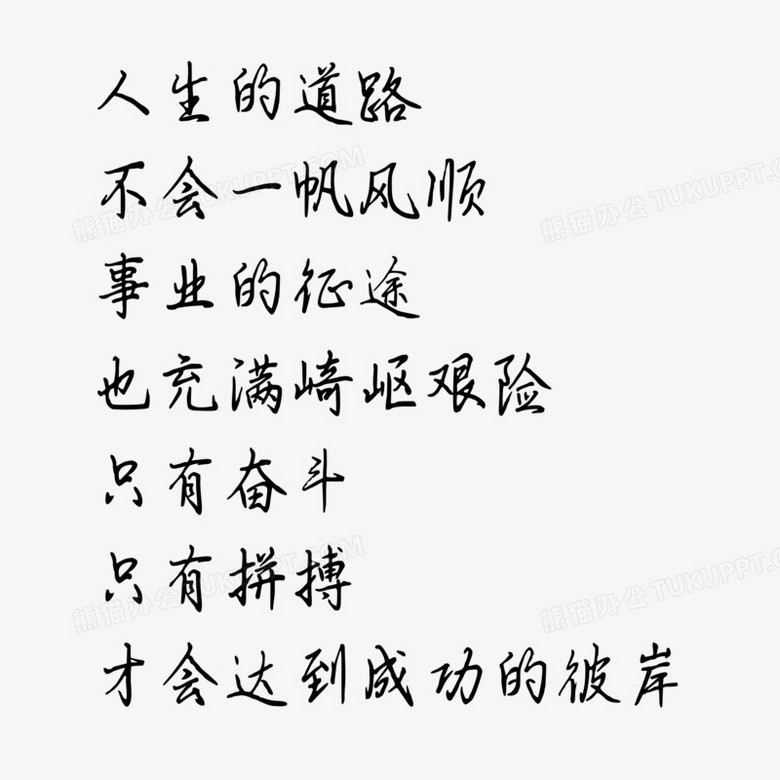 人生的道路
不会一帆风顺
事业的征途
也充满崎岖艰险
只有奋斗
只有拼搏
才会达到成功的彼岸
熊猫办公 TUKUPPT.COM
熊猫办公 TUKUPPT.COM
熊猫办公 TUKUPPT.COM
熊猫办公 TUKUPPT.COM